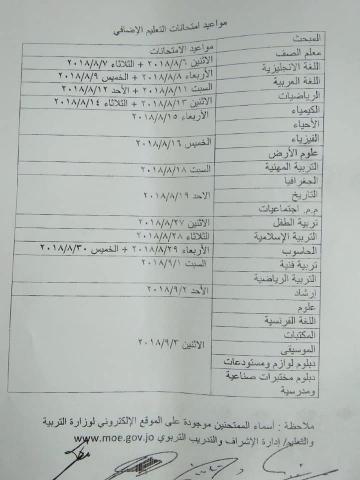 مواعيد امتحانات التعليم الإضافي
المبحث
مواعيد الامتحانات
معلم الصف
الاثنين ٢٠١٨/٨/٦ + الثلاثاء ٢٠١٨/٨/٧
اللغة الانجليزية
الأربعاء ٢٠١٨/٨/٨ + الخميس ٢٠١٨/٨/٩
اللغة العربية
السبت ٢٠١٨/٨/١١ + الأحد ٢٠١٨/٨/١٢
الرياضيات
الاثنين ٢٠١٨/٨/١٣ + الثلاثاء ٢٠١٨/٨/١٤
الكيمياء
الأربعاء ٢٠١٨/٨/١٥
الأحياء
الفيزياء
الخميس ٢٠١٨/٨/١٦
علوم الأرض
التربية المهنية
السبت ٢٠١٨/٨/١٨
الجغرافيا
التاريخ
الاحد ٢٠١٨/٨/١٩
م.م. اجتماعيات
تربية الطفل
الاثنين ٢٠١٨/٨/٢٧
التربية الإسلامية
الثلاثاء ٢٠١٨/٨/٢٨
الحاسوب
الأربعاء ٢٠١٨/٨/٢٩ + الخميس ٢٠١٨/٨/٣٠
تربية فنية
السبت ٢٠١٨/٩/١
التربية الرياضية
إرشاد
الأحد ٢٠١٨/٩/٢
علوم
اللغة الفرنسية
المكتبات
الاثنين ٢٠١٨/٩/٣
الموسيقى
دبلوم لوازم ومستودعات
دبلوم مختبرات صناعية
ومدرسية
ملاحظة : أسماء الممتحنين موجودة على الموقع الإلكتروني لوزارة التربية
والتعليم/ إدارة الإشراف والتدريب التربوي www.moe.gov.jo